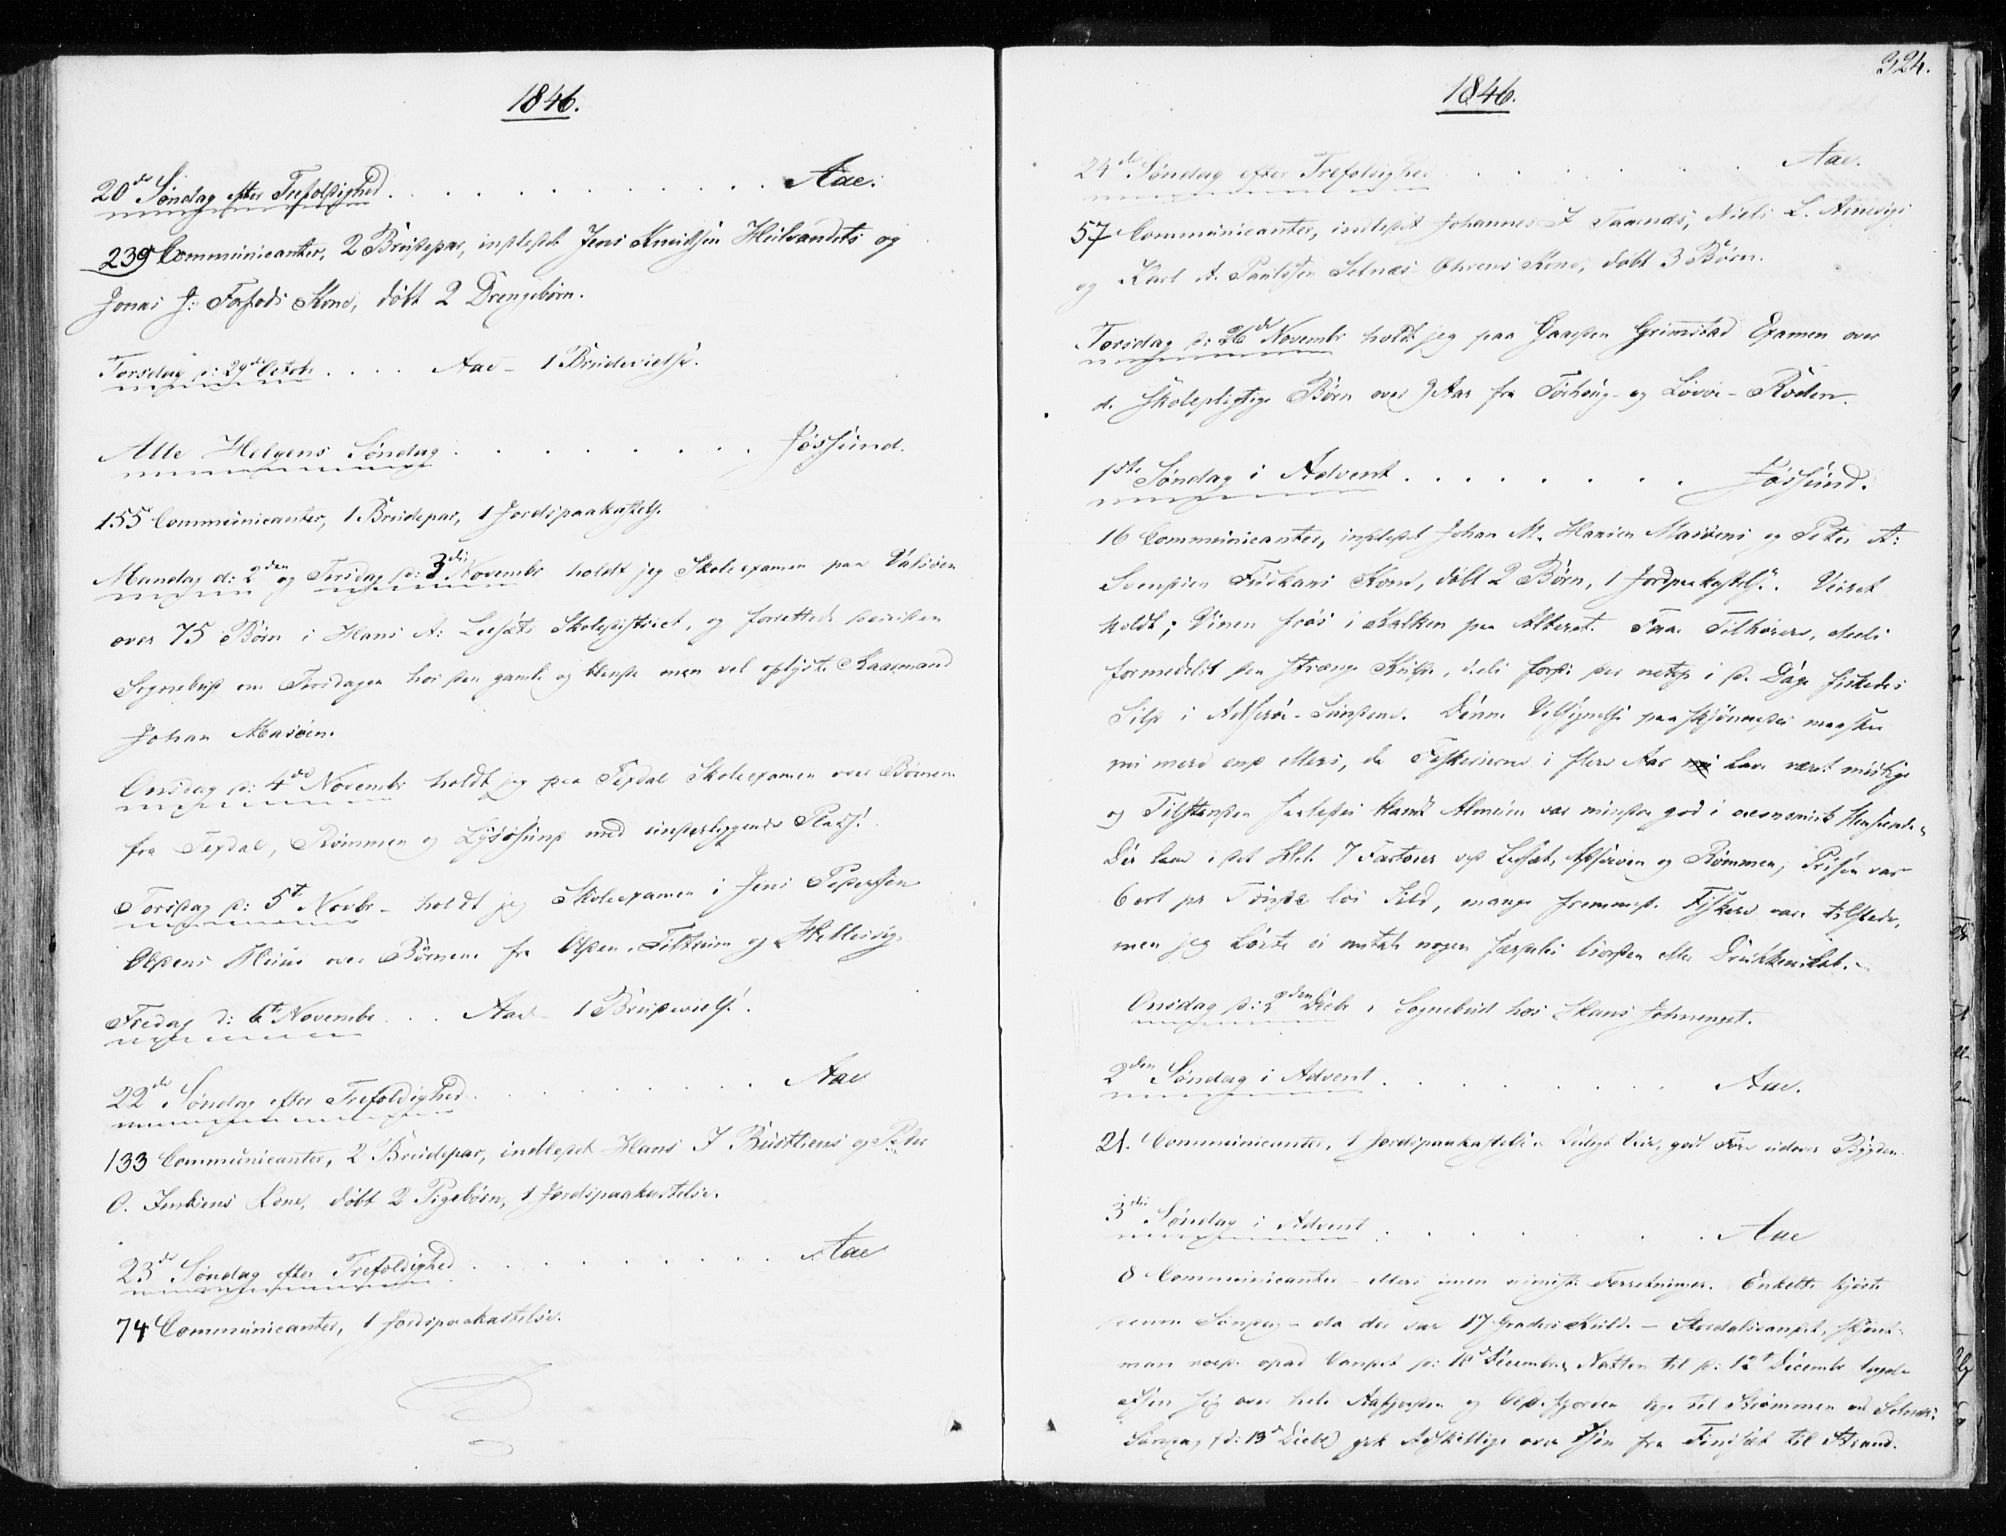 1846.
20de Søndag efter Trefoldighed . . . . . . . . . . . Aae.
239 Communicanter, 2 Brudepar, indledet Jens Knudsen Hulvandets og
Jonas J: Forfods Kone, døbt 2 Drengebørn.
Torsdag d: 29de Octobr . . . . Aae – 1 Brudevielse.
Alle Helgens Søndag . . . . . . . . Jøssund.
155 Communicanter, 1 Brudepar, 1 Jordspaakastelse
Mandag d: 2den og Tirsdag d: 3die Novembr holdt jeg Skoleexamen paa Valsøen
over 75 Børn i Hans A: Leesæts Skoledistrict, og forrettede desuden
Sognebud om Tirsdagen hos den gamle og blinde men vel oplyste Raamand
Johan Masøen.
Onsdag d: 4de Novembr holdt jeg paa Texdal Skoleexamen over Børnene
fra Texdal, Rømmen og Lysøsund med underliggende Pladse.
Torsdag d: 5t Novbr – holdt jeg Skoleexamen i Jens Pedersen
Olsens Huus over Børnene fra Olden, Teltrum og Hellesvig.
Fredag d: 6t Novembr . . . Aae – 1 Brudevielse.
22de Søndag efter Trefoldighed . . . . . . . Aae
133 Communicanter, 2 Brudepar, indledet Hans J Busliens og Peter
O. Kone, døbt 2 Pigebørn, 1 Jordspaakastelse.
23de Søndag efter Trefoldighed . . . . . . . . Aae
74 Communicanter, 1 Jordspaakastelse.
324.
1846.
24de Søndag efter Trefoldighed . . . . . . . Aae.
57 Communicanter, indledet Johannes J Taarnes, Niels L. Arnevigs
og Karl A. Paulsen Selnæs Kone, døbt 3 Børn.
Torsdag d: 26de Novembr holdt jeg paa Gaarden Grimstad Examen over
de skolepligtige Børn over 9 Aar fra Tørhoug- og Lovøe-Roden.
1ste Søndag i Advent . . . . . . . . . Jøssund.
16 Communicanter, indledet Johan M. Hansen Masøens og Peter A:
Svendsen Kone, døbt 2 Børn, 1 Jordpaakastelse. Veiret
koldt; Vinen frøs i Kalken paa Alteret. Faae Tilhørere, deels
formedelst den strænge Kulde, deels fordi der netop i d. Dage fiskedes
Sild i Sundene. Denne Velsignelse paaskjønnedes maaskee
nu mere end ellers, da Fiskerierne i flere Aar have været maadelige
og Tilstanden saaledes blandt Almuen var mindre god i oeconomisk Henseende.
Der laae i det Hele 7 Farteier ved Leesæt, og Rømmen; Prisen var
6 ort pr Tønde løs Sild, mange fremmede Fiskere vare tilstede,
men jeg hørte ei omtale nogen særdeles Uorden eller Drukkenskab.
Onsdag d: 2den Decbr i Sognebud hos Hans Johnenget.
2den Søndag i Advent . . . . . . . . Aae.
21. Communicanter, 1 Jordspaakastelse. Veir, godt Føre udover Bygden.
3die Søndag i Advent . . . . . . . Aae
8 Communicanter – ellers ingen ministr: Forretninger. Enkelte kjørte
denne Søndag – da der var 17 Graders Kulde – Stordalsvandet, skjønt
man roede opad Vandet d: 10de Decembr, Natten til d: 12t Decembr lagde
Isen sig over hele Aafjorden og Oldfjorden lige til Strømmen ved Selnæs.
Søndag d: 13de Decbr gik Adskillige over Isen fra Findsæt til Strand.